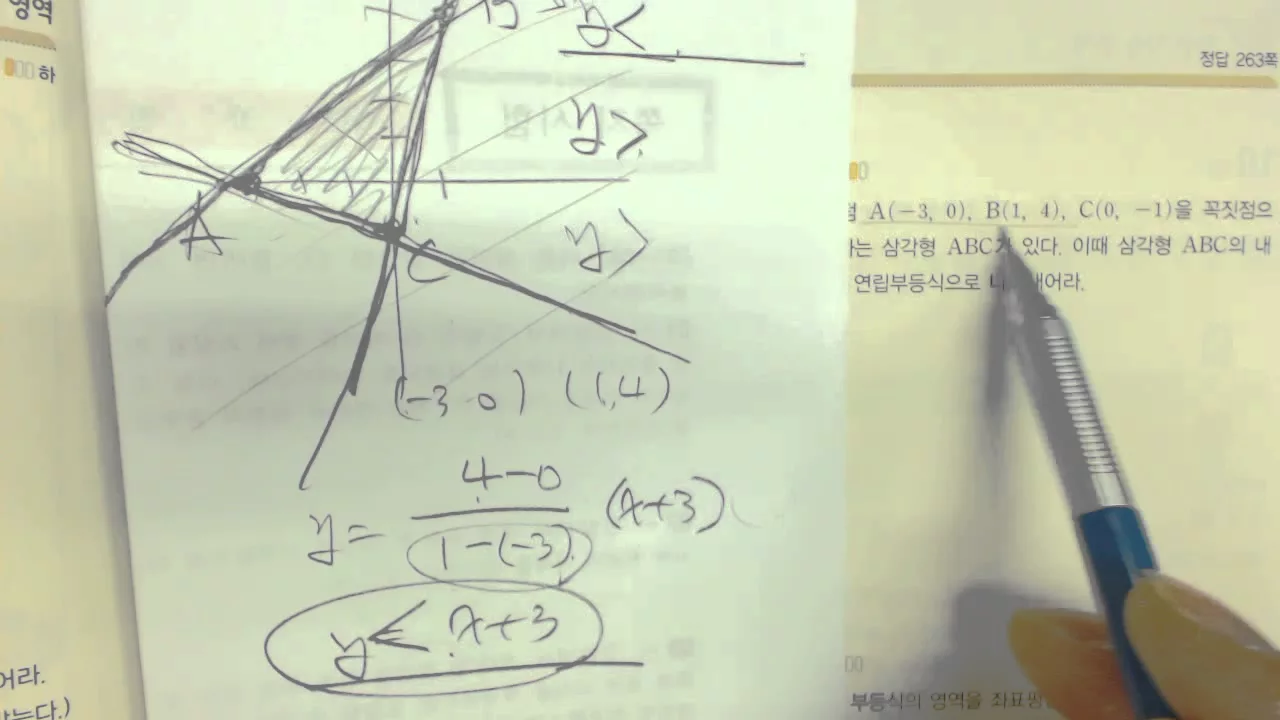 영역
하
y<
y>
y>
A
C
(-3 0) (1,4)
y= 4-0 / 1-(-3) (x+3)
y< x+3
정답 263쪽
A(−3, 0), B(1, 4), C(0, −1)을 꼭짓점으
하는 삼각형 ABC가 있다. 이때 삼각형 ABC의 내
연립부등식으로
어라.
부등식의 영역을 좌표평
어라.